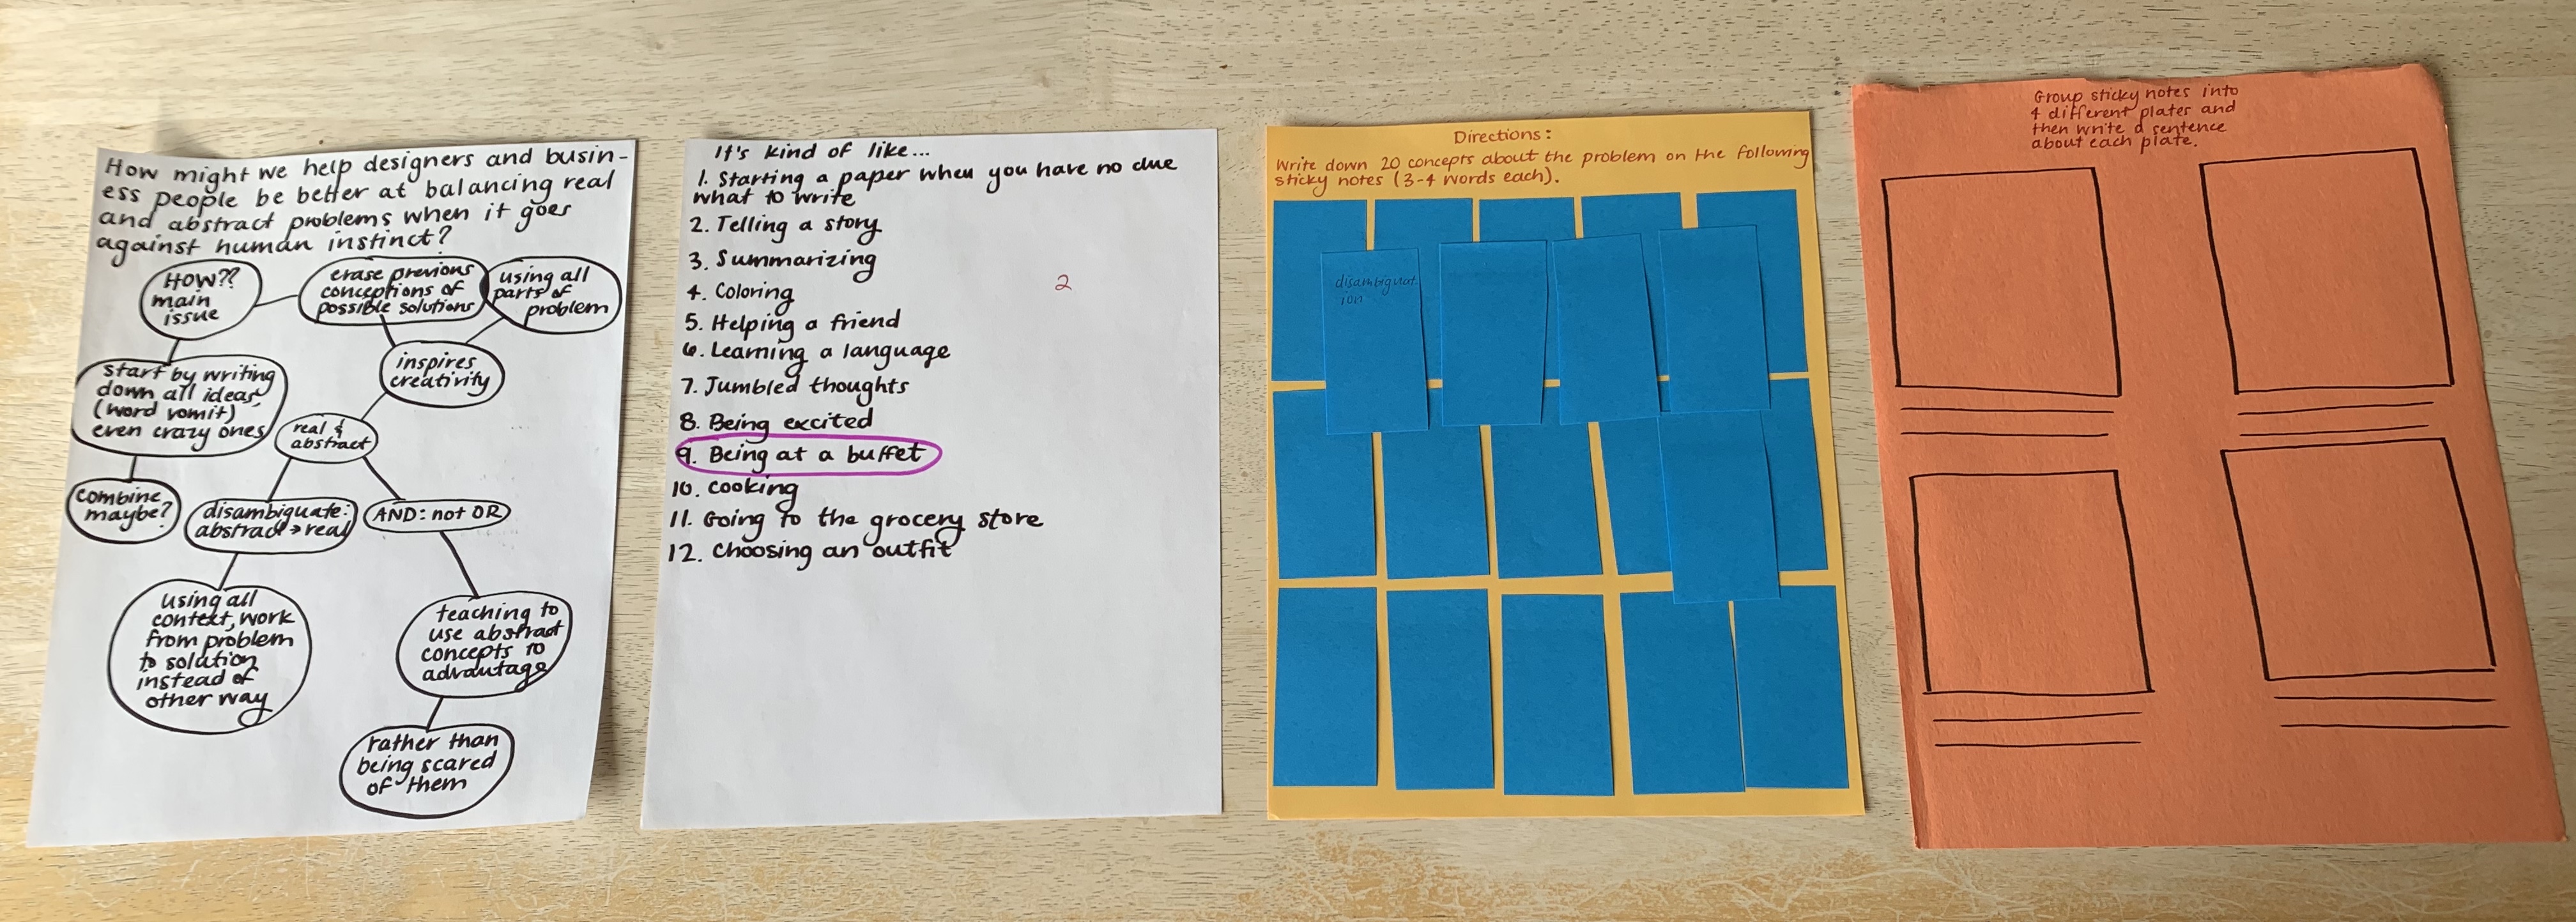 How might we help designers and busin-
ess people be better at balancing real
and abstract problems when it goes
against human instinct?
HOW??
main
issue
erase previous
conceptions of
possible solutions
using all
parts of
problem
inspires
creativity
start by writing
down all ideas,
(word vomit)
even crazy ones
real &
abstract
combine
maybe?
disambiguate:
abstract→real
AND: not OR
using all
context, work
from problem
to solution
instead of
other way
teaching to
use abstract
concepts to
advantage
rather than
being scared
of them
It's kind of like...
1. Starting a paper when you have no clue
what to write
2. Telling a story
3. Summarizing
4. Coloring
5. Helping a friend
6. Learning a language
7. Jumbled thoughts
8. Being excited
9. Being at a buffet
10. Cooking
11. Going to the grocery store
12. Choosing an outfit
2
Directions:
Write down 20 concepts about the problem on the following
sticky notes (3-4 words each).
disambiguat
ion
Group sticky notes into
4 different plates and
then write a sentence
about each plate.